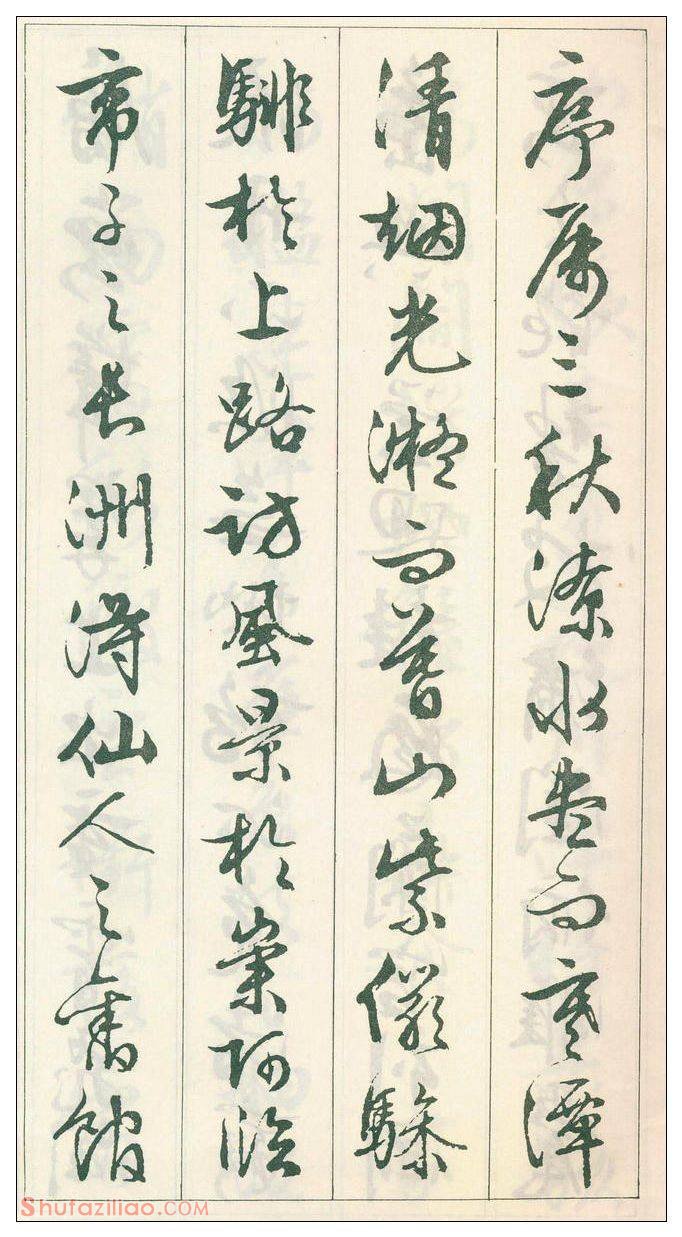 序属三秋潦水尽而寒潭
清烟光凝而暮山紫俨骖
騑於上路访风景於崇阿临
帝子之长洲得仙人之旧馆
Shufaziliao.COM